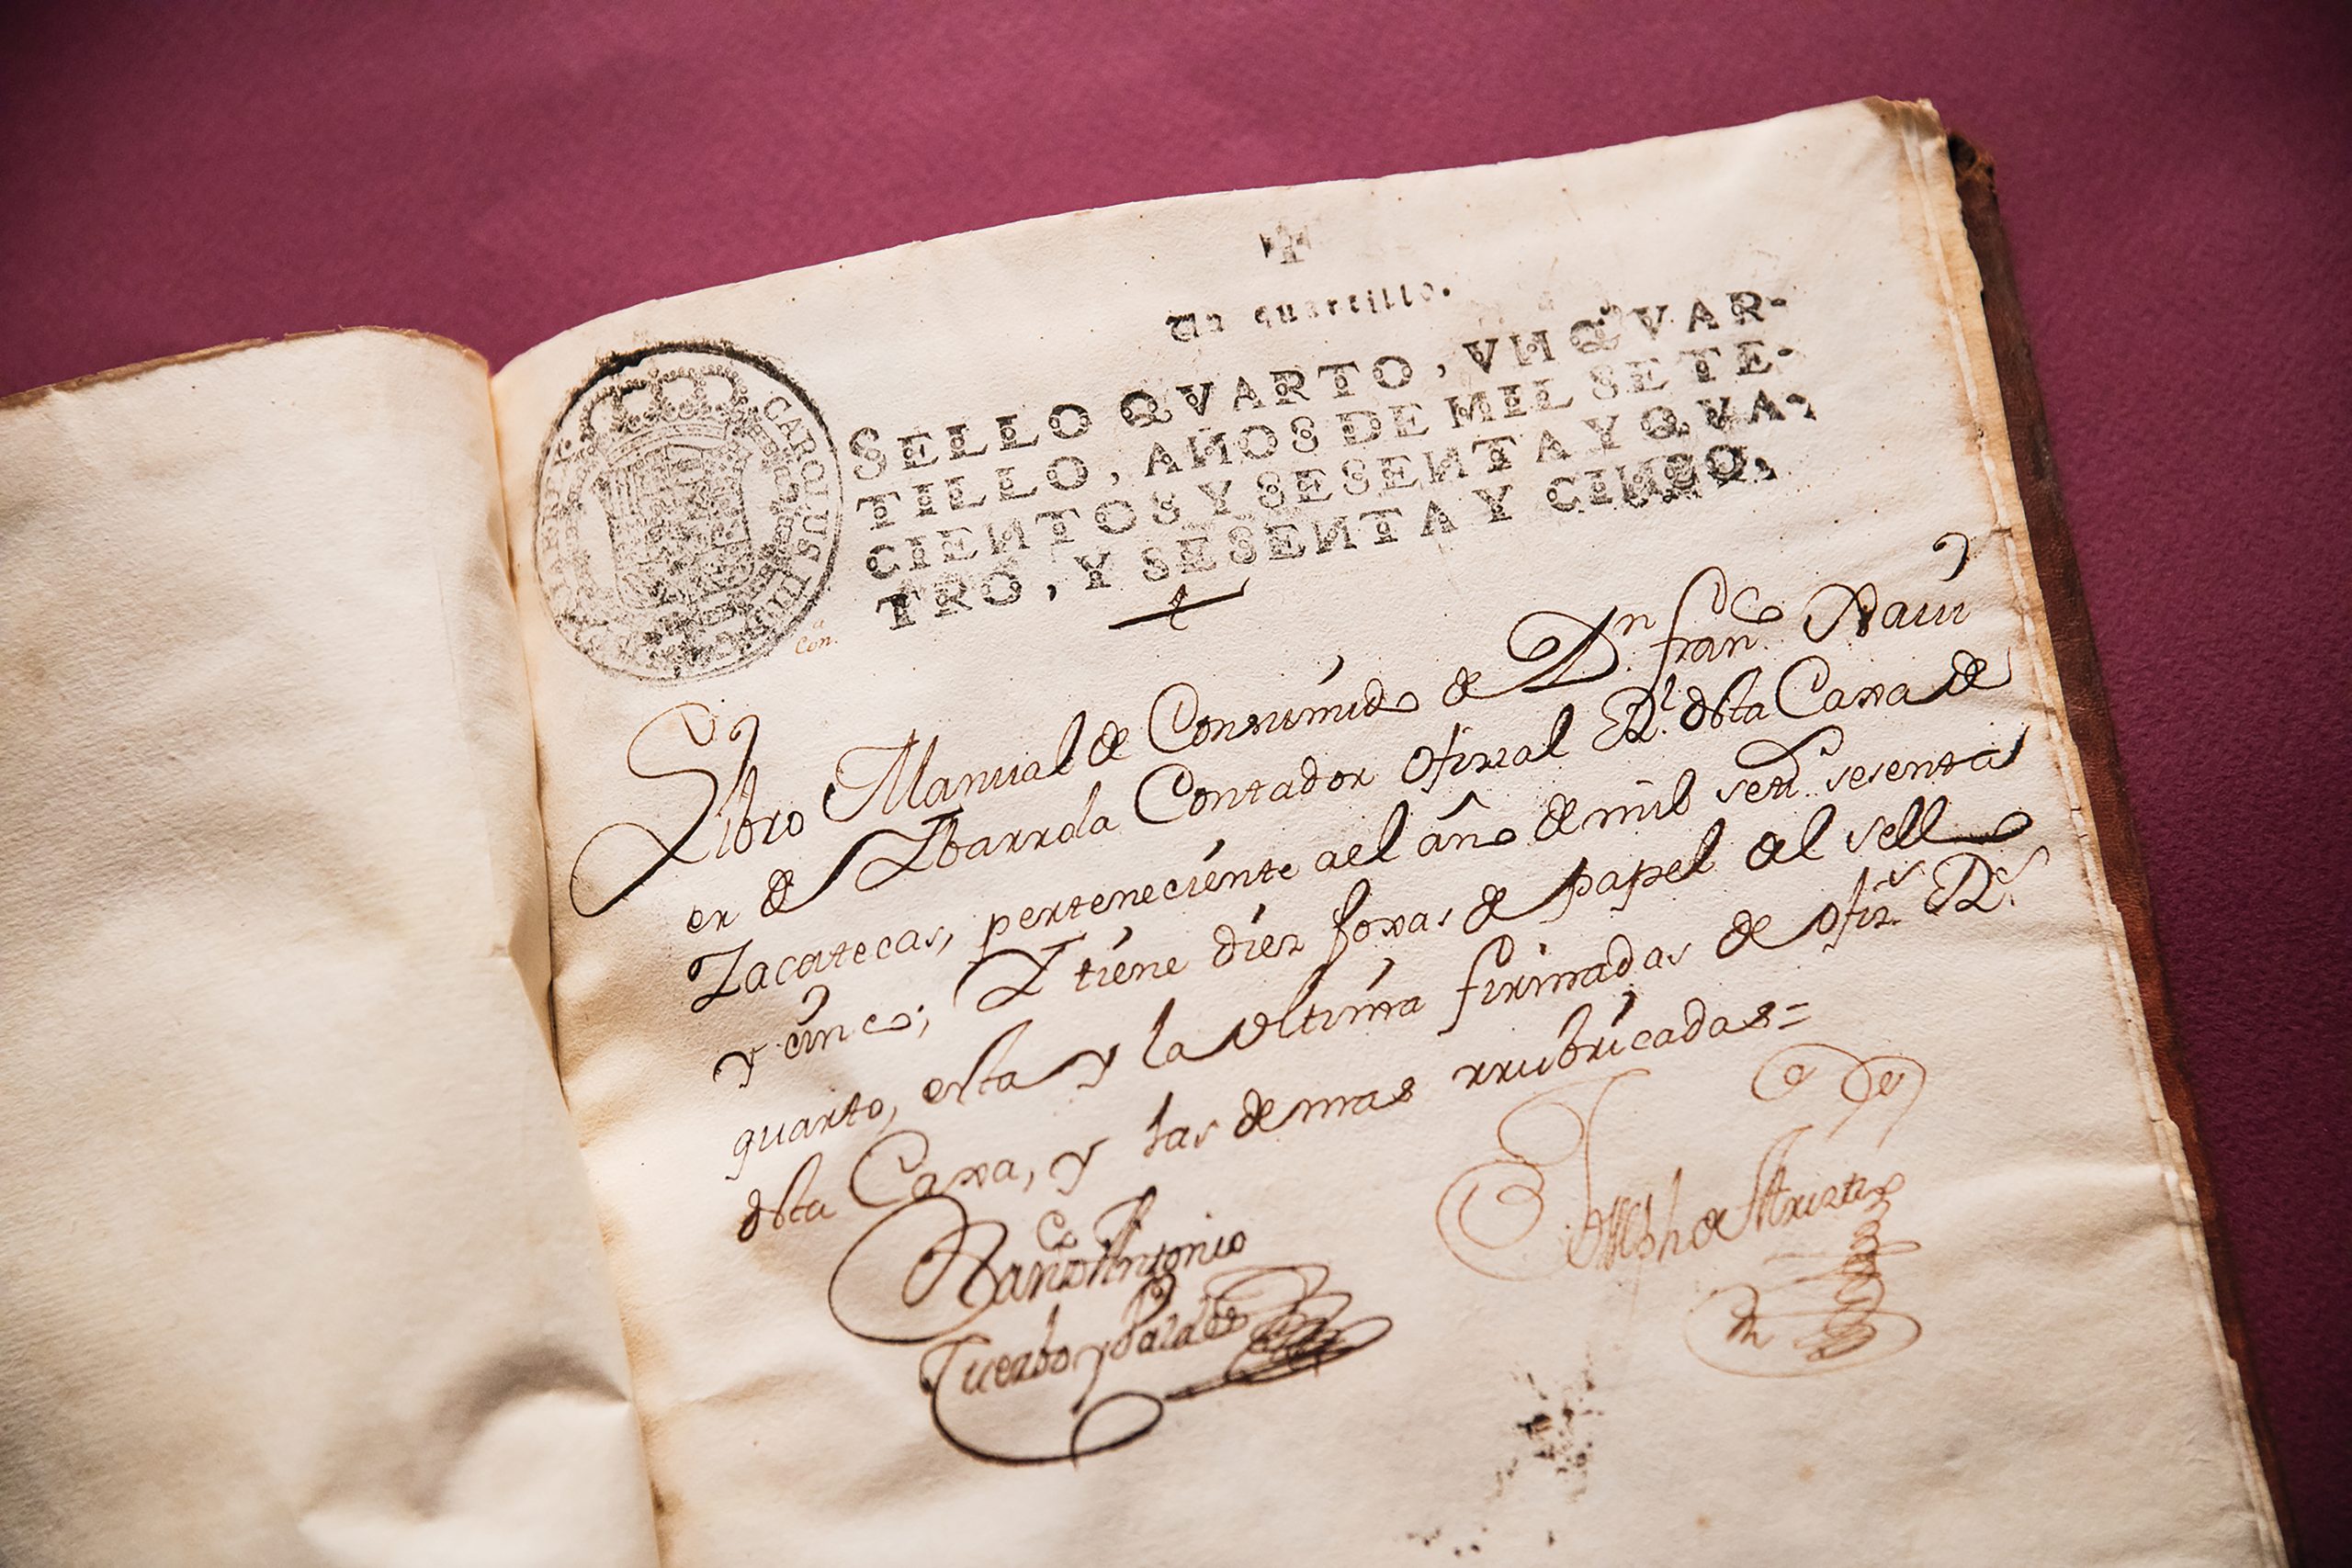 Un quartillo.
SELLO QVARTO, VN QVAR-
TILLO, AÑOS DE MIL SETE-
CIENTOS Y SESENTA Y QVA-
TRO, Y SESENTA Y CINCO.
CAROLUS III D
Con.a
Libro Manual de Consumido de Dn. Franco. Xavi
er de Ybarrola Contador Ofizial Rl. desta Caxa de
Zacatecas, perteneciente a el año de mil setts. sesenta
y cinco; Y tiene diez foxas de papel del sello
quarto, esta y la vltima firmadas de ofizs. Rs.
desta Caxa, y las demas rrubricadas=
Antonio
Cuerbo y
Joseph de